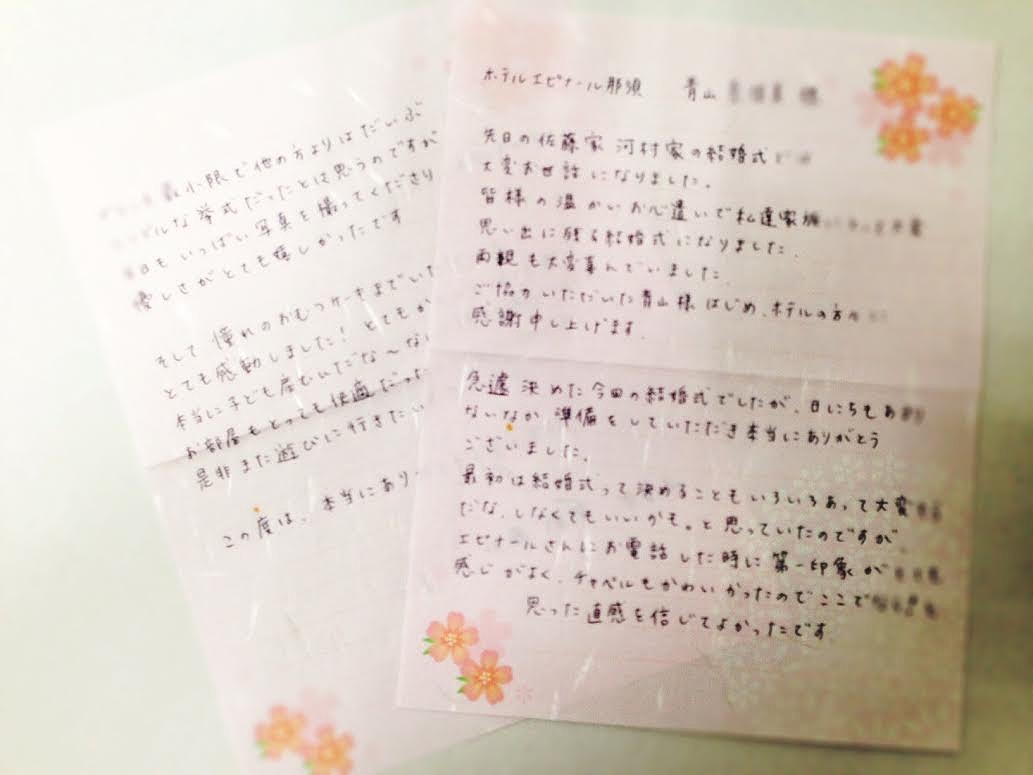 ホテルエピナール那須 青山
先日の佐藤家 河村家の結婚式
大変お世話になりました。
皆様の温かいお心遣いで私達家族
思い出に残る結婚式になりました。
両親も大変喜んでいました。
ご協力いただいた青山様はじめ、ホテルの方々
感謝申し上げます。
急遽決めた今回の結婚式でしたが、日にちもあ
ないなか準備をしていただき本当にありがとう
ございました。
最初は結婚式って決めることもいろいろあって大変
だな、しなくてもいいかも。と思っていたのですが、
エピナールさんにお電話した時に第一印象が
感じがよく、チャペルもかわいかったのでここで
思った直感を信じてよかったです
小限で他の方よりはだいぶ
ルな挙式だったとは思うのですが
日もいっぱい写真を撮ってくださり
優しさがとても嬉しかったです
そして憧れのおむつケーキまでいた
とても感動しました！とてもか
本当に子ども産むんだな〜な
お部屋もとっても快適だった
是非また遊びに行きたい
この度は、本当にあり